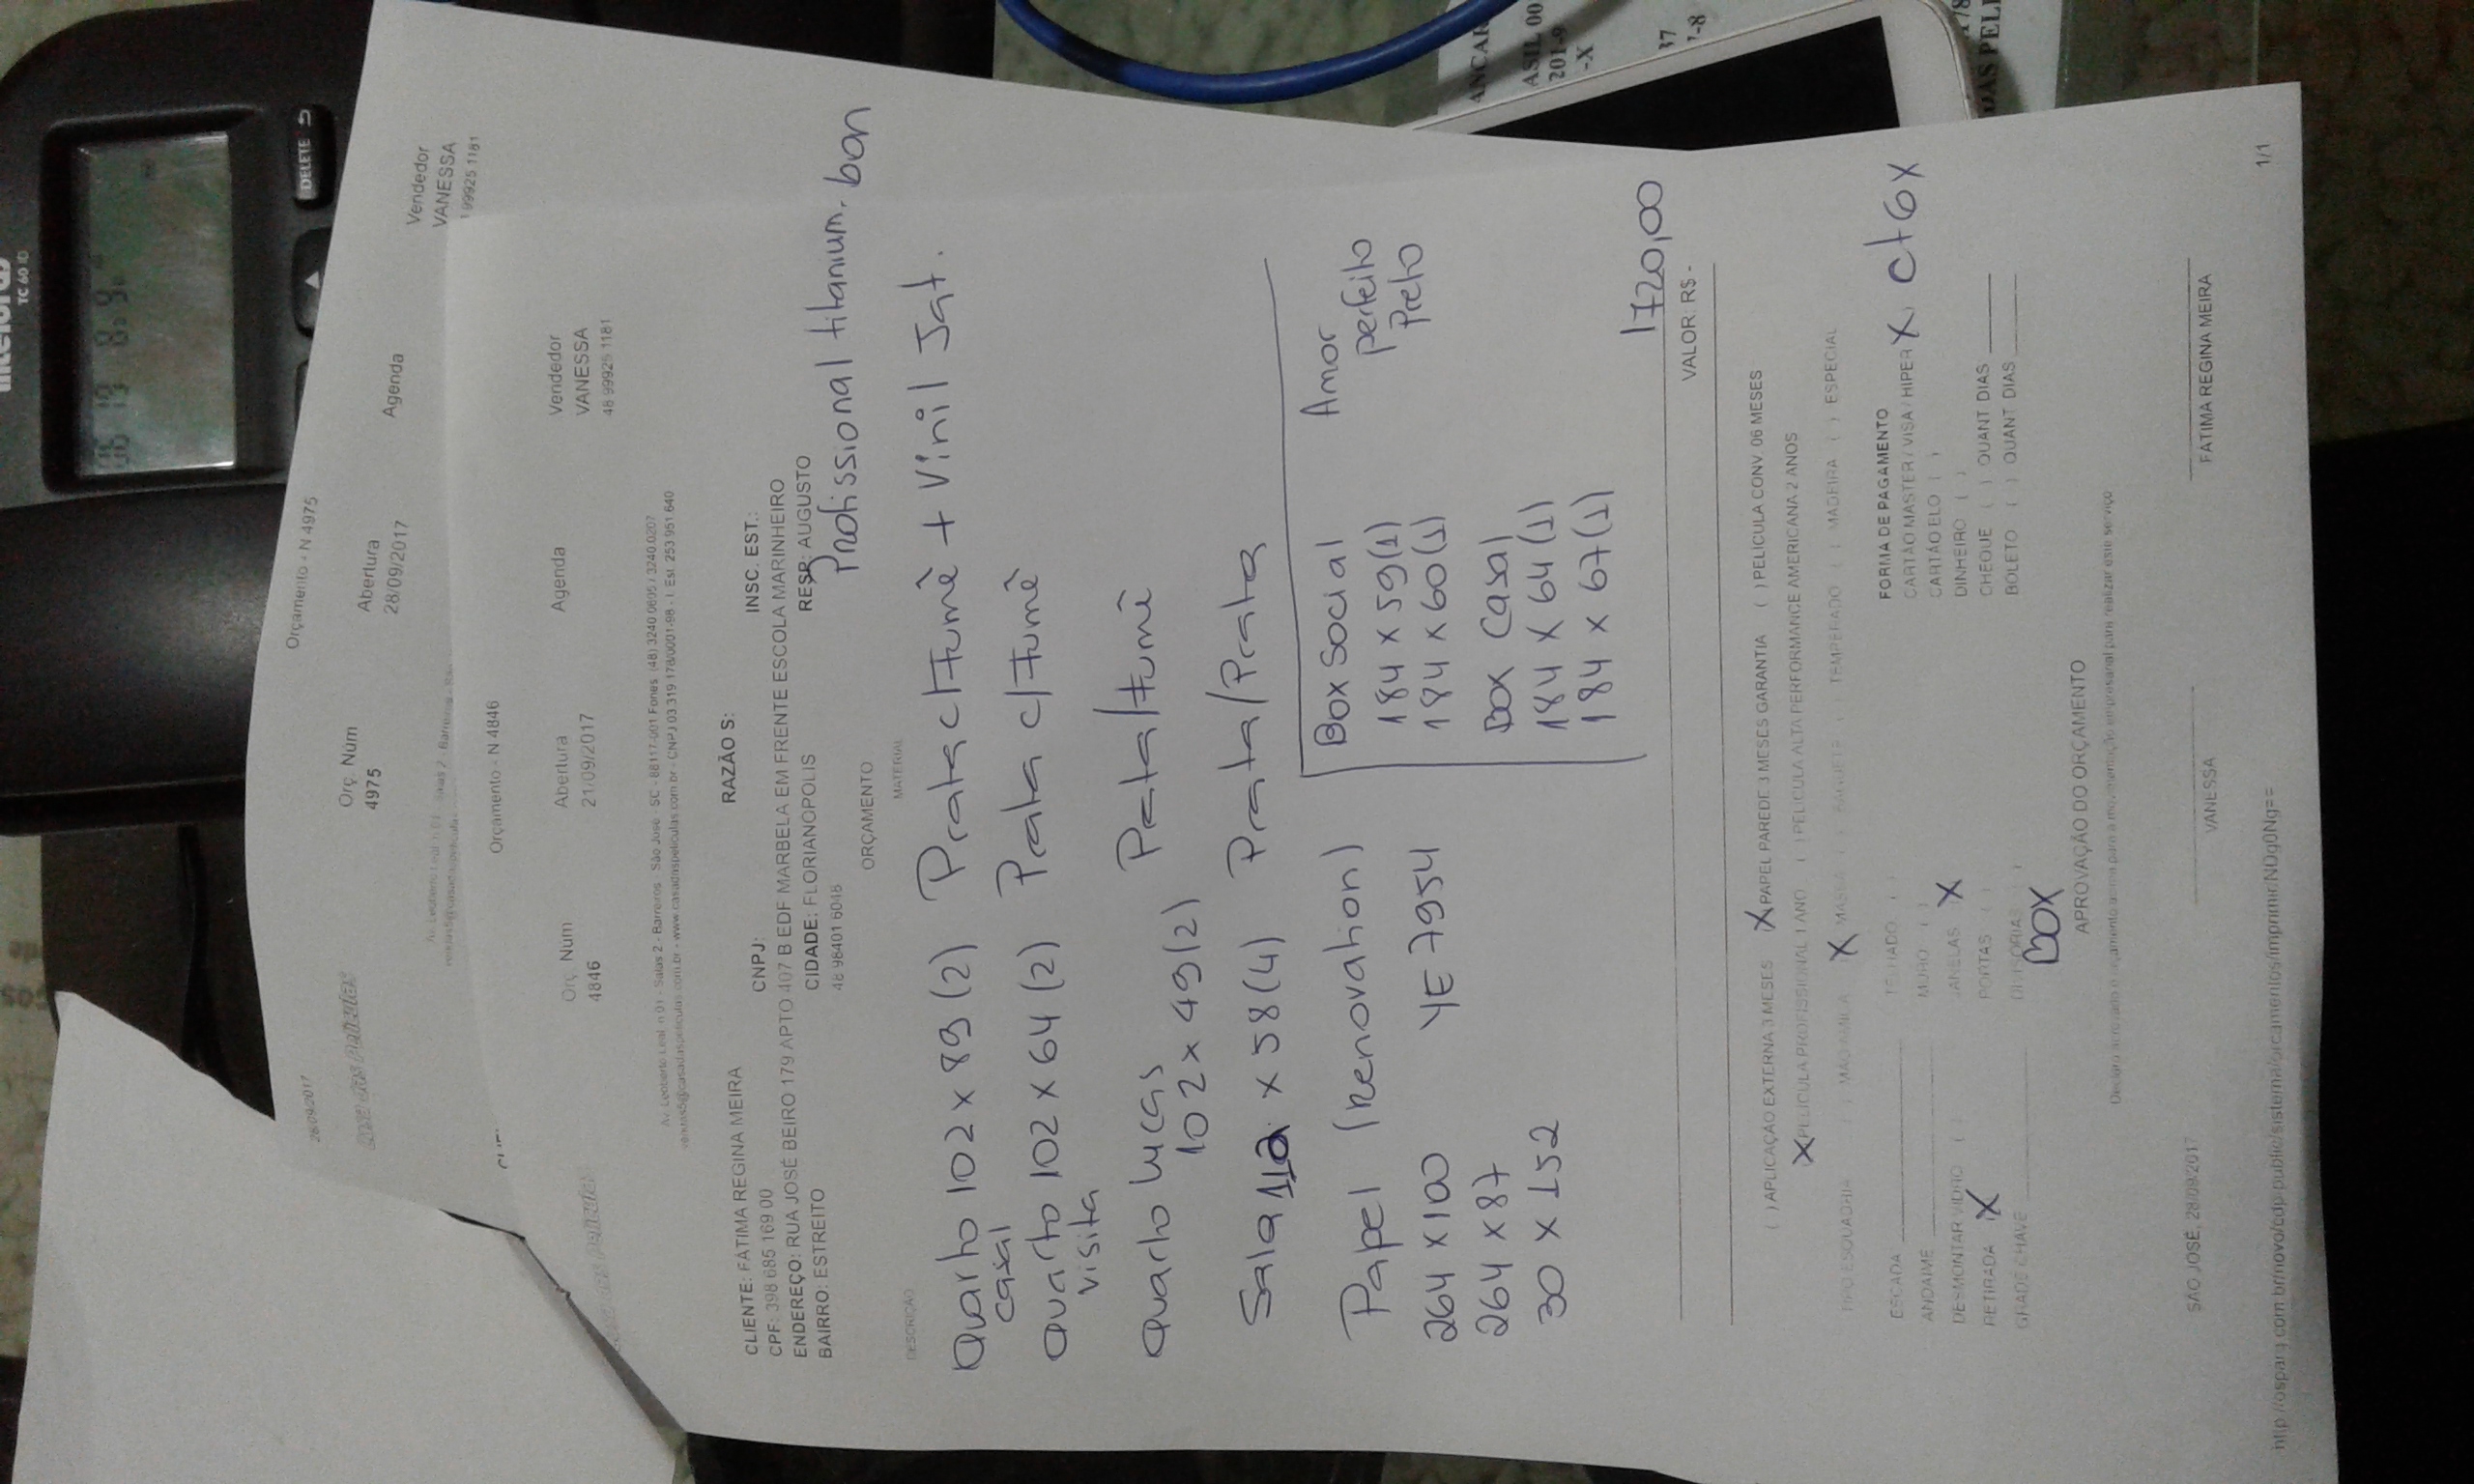 TC 60 ID
DELETE
ASIL 00
201-9
-X
37
7-8
DAS PELI
28/09/2017
Orçamento - N 4975
Orç. Núm
4975
Abertura
28/09/2017
Agenda
Vendedor
VANESSA
99925 1181
Orçamento - N 4846
Orç. Núm
4846
Abertura
21/09/2017
Agenda
Vendedor
VANESSA
48 99925 1181
Av. Leoberto Leal n 01 - Salas 2 - Barreiros São José - SC - 88117-001 Fones: (48) 3240 0605 / 3240 0207
vendas5@casadaspeliculas.com.br - www.casadaspeliculas.com.br - CNPJ 03.319.178/0001-98 - I. Est. 253.951.640
CLIENTE: FÁTIMA REGINA MEIRA CNPJ: RAZÃO S: INSC. EST.:
CPF: 398 685 169 00
ENDEREÇO: RUA JOSÉ BEIRO 179 APTO 407 B EDF MARBELA EM FRENTE ESCOLA MARINHEIRO
BAIRRO: ESTREITO CIDADE: FLORIANOPOLIS RESP: AUGUSTO
48 98401 6048
ORÇAMENTO
Profissional titanium. bon
DESCRIÇÃO MATERIAL
Quarto 102 x 89 (2) Prata c/ Fumê + Vinil Jat.
casal
Quarto 102 x 64 (2) Prata c/ Fumê
visita
Quarto Lucas
102 x 49 (2) Prata/Fumê
Sala 112 x 58 (4) Prata/Prata
Papel (Renovation)
264 x 100 YE 7954
264 x 87
30 x 152
Box Social
184 x 59 (1)
184 x 60 (1)
Box Casal
184 x 64 (1)
184 x 67 (1)
Amor
perfeito
Preto
1720,00
VALOR: R$ -
( ) APLICAÇÃO EXTERNA 3 MESES X PAPEL PAREDE 3 MESES GARANTIA ( ) PELÍCULA CONV. 06 MESES
X PELICULA PROFISSIONAL 1 ANO ( ) PELICULA ALTA PERFORMANCE AMERICANA 2 ANOS
TIPO ESQUADRIA X TEMPERADO ( ) MADEIRA ( ) ESPECIAL
ESCADA
ANDAIME
DESMONTAR VIDRO ( )
RETIRADA X
GRADE CHAVE
TELHADO ( )
MURO ( )
JANELAS X
PORTAS ( )
DIVISORIAS ( )
BOX
FORMA DE PAGAMENTO
CARTÃO MASTER / VISA / HIPER X ct 6x
CARTÃO ELO ( )
DINHEIRO ( )
CHEQUE ( ) QUANT DIAS
BOLETO ( ) QUANT DIAS
APROVAÇÃO DO ORÇAMENTO
SÃO JOSÉ, 28/09/2017
VANESSA
FATIMA REGINA MEIRA
1/1